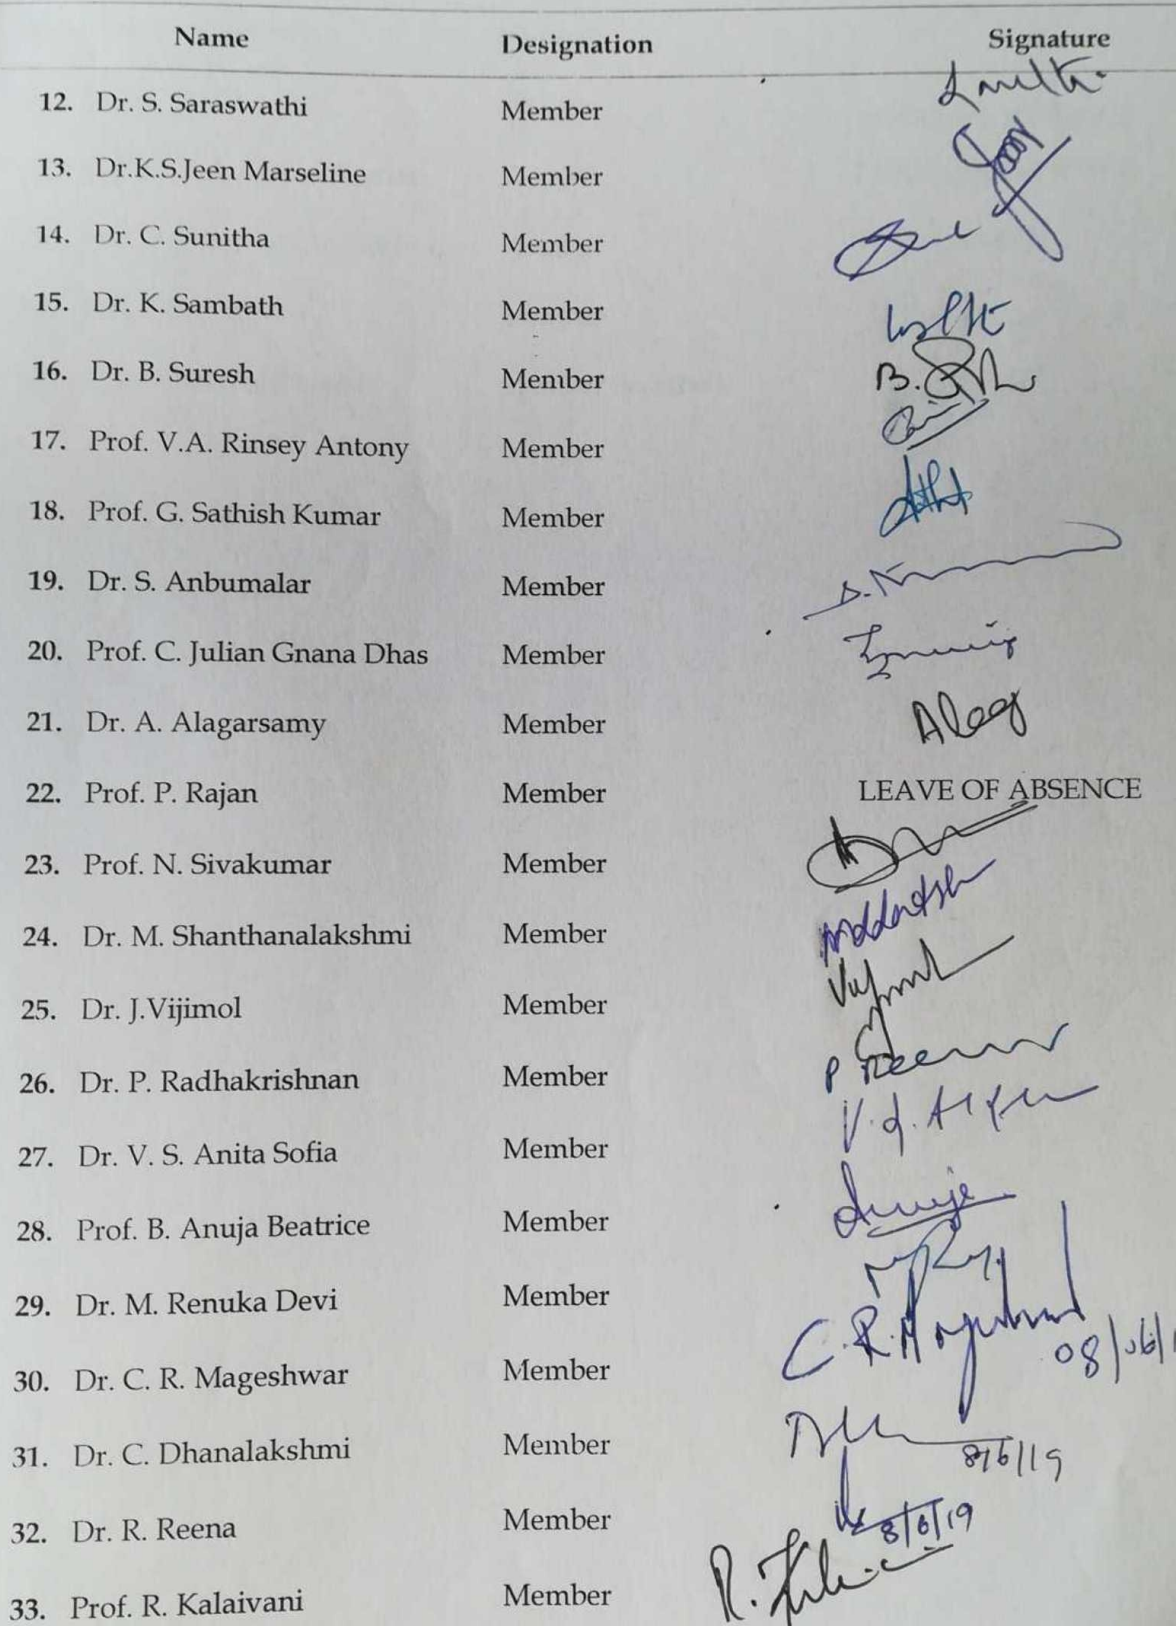 Name Designation Signature
12. Dr. S. Saraswathi Member
13. Dr.K.S.Jeen Marseline Member
14. Dr. C. Sunitha Member
15. Dr. K. Sambath Member
16. Dr. B. Suresh Member B.
17. Prof. V.A. Rinsey Antony Member
18. Prof. G. Sathish Kumar Member
19. Dr. S. Anbumalar Member
20. Prof. C. Julian Gnana Dhas Member
21. Dr. A. Alagarsamy Member Alag
22. Prof. P. Rajan Member LEAVE OF ABSENCE
23. Prof. N. Sivakumar Member
24. Dr. M. Shanthanalakshmi Member
25. Dr. J.Vijimol Member
26. Dr. P. Radhakrishnan Member
27. Dr. V. S. Anita Sofia Member
28. Prof. B. Anuja Beatrice Member
29. Dr. M. Renuka Devi Member
30. Dr. C. R. Mageshwar Member C.R. 08/06/1
31. Dr. C. Dhanalakshmi Member 8/6/19
32. Dr. R. Reena Member 8/6/19
33. Prof. R. Kalaivani Member R.